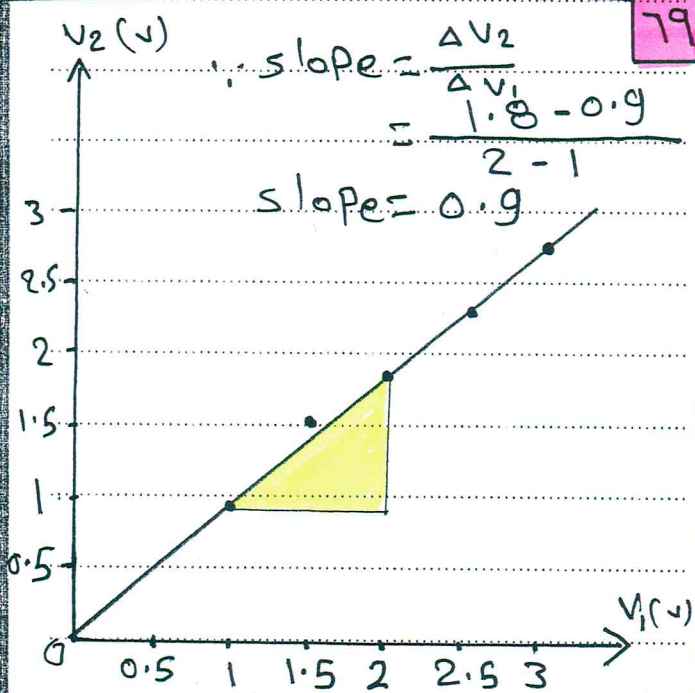 V2 (v)
79
∵ slope = ΔV2 / ΔV1
= 1.8 - 0.9 / 2 - 1
slope = 0.9
3
2.5
2
1.5
1
0.5
0
0.5 1 1.5 2 2.5 3
V1 (v)